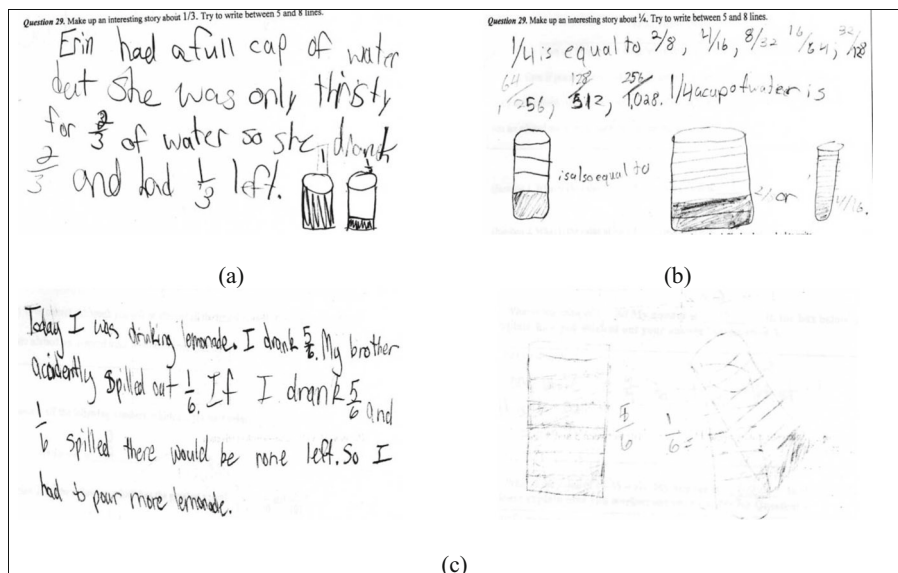 Question 29. Make up an interesting story about 1/3. Try to write between 5 and 8 lines.
Erin had a full cap of water
but she was only thristy
for 2/3 of water so she drank
2/3 and had 1/3 left.
(a)
Question 29. Make up an interesting story about ¼. Try to write between 5 and 8 lines.
1/4 is equal to 2/8, 4/16, 8/32 16/64, 32/128
64/256, 128/512, 256/1,028. 1/4 a cup of water is
is also equal to
2/8 or
4/16.
(b)
Today I was drinking lemonade. I drank 5/6. My brother
accidently spilled out 1/6. If I drank 5/6 and
1/6 spilled there would be none left. So I
had to pour more lemonade.
5/6
1/6=
(c)